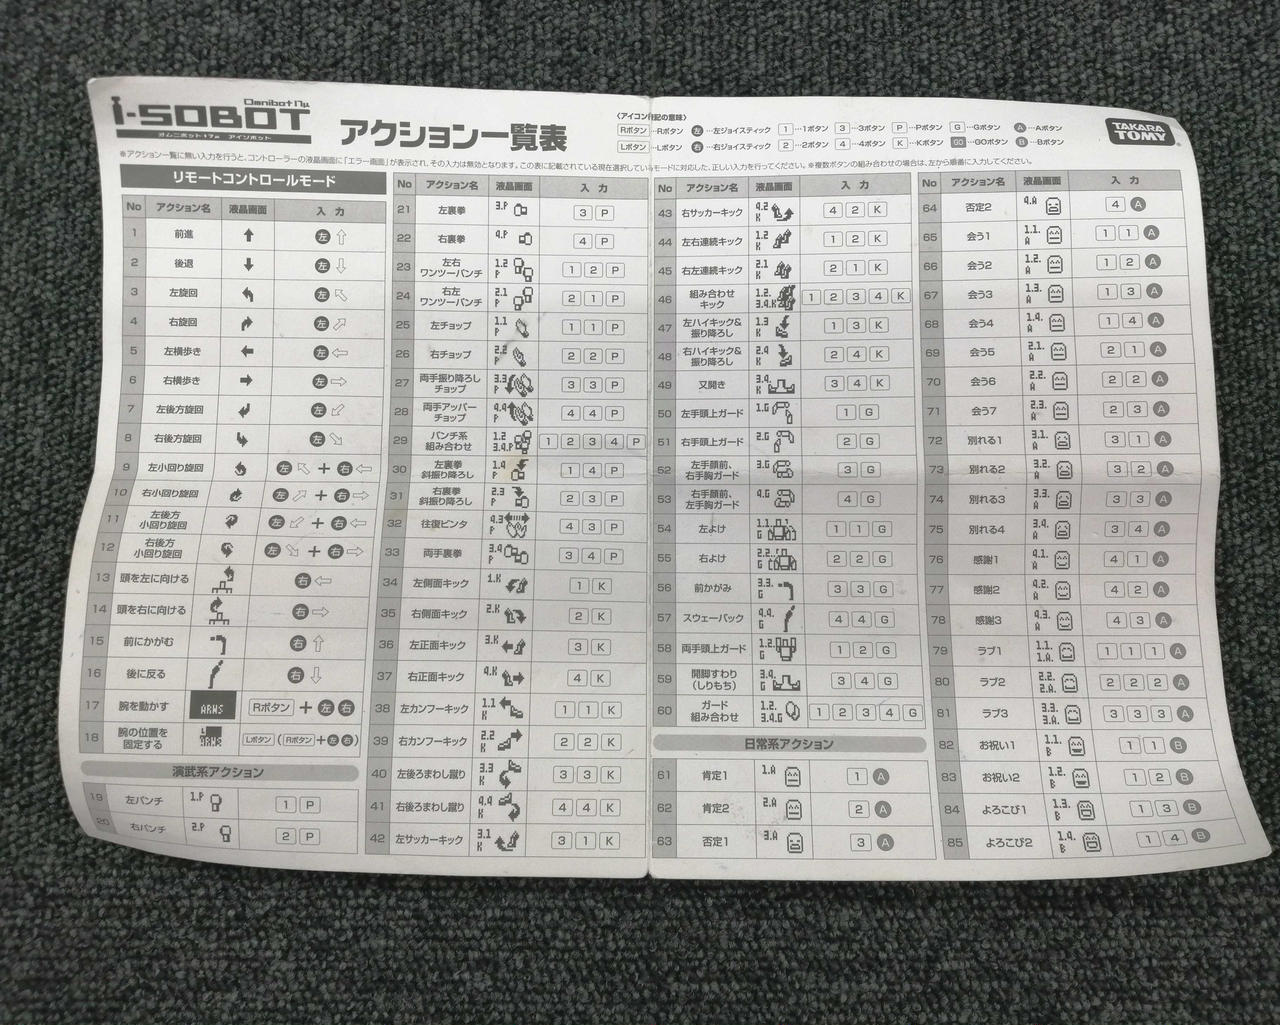 Omnibot17μ
i-SOBOT
オムニボット17μ アイソボット
アクション一覧表
〈アイコン表記の意味〉
Rボタン…Rボタン 左…左ジョイスティック 1…1ボタン 3…3ボタン P…Pボタン G…Gボタン A…Aボタン
Lボタン…Lボタン 右…右ジョイスティック 2…2ボタン 4…4ボタン K…Kボタン GO…GOボタン B…Bボタン
TAKARA TOMY
※アクション一覧に無い入力を行うと、コントローラーの液晶画面に「エラー画面」が表示され、その入力は無効となります。この表に記載されている現在選択しているモードに対応した、正しい入力を行ってください。※複数ボタンの組み合わせの場合は、左から順番に入力してください。
リモートコントロールモード
No アクション名 液晶画面 入力
1 前進 ↑ 左⇧
2 後退 ↓ 左⇩
3 左旋回 左⇖
4 右旋回 左⇗
5 左横歩き ← 左⇦
6 右横歩き → 左⇨
7 左後方旋回 左⇙
8 右後方旋回 左⇘
9 左小回り旋回 左⇖ + 右⇦
10 右小回り旋回 左⇗ + 右⇨
11 左後方小回り旋回 左⇙ + 右⇦
12 右後方小回り旋回 左⇘ + 右⇨
13 頭を左に向ける 右⇦
14 頭を右に向ける 右⇨
15 前にかがむ 右⇧
16 後に反る 右⇩
17 腕を動かす ARMS Rボタン + 左右
18 腕の位置を固定する L ARMS Lボタン (Rボタン+左右)
演武系アクション
19 左パンチ 1.P 1 P
20 右パンチ 2.P 2 P
No アクション名 液晶画面 入力
21 左裏拳 3.P 3 P
22 右裏拳 4.P 4 P
23 左右ワンツーパンチ 1.2 P 1 2 P
24 右左ワンツーパンチ 2.1 P 2 1 P
25 左チョップ 1.1 P 1 1 P
26 右チョップ 2.2 P 2 2 P
27 両手振り降ろしチョップ 3.3 P 3 3 P
28 両手アッパーチョップ 4.4 P 4 4 P
29 パンチ系組み合わせ 1.2 3.4.P 1 2 3 4 P
30 左裏拳斜振り降ろし 1.4 P 1 4 P
31 右裏拳斜振り降ろし 2.3 P 2 3 P
32 往復ビンタ 4.3 P 4 3 P
33 両手裏拳 3.4 P 3 4 P
34 左側面キック 1.K 1 K
35 右側面キック 2.K 2 K
36 左正面キック 3.K 3 K
37 右正面キック 4.K 4 K
38 左カンフーキック 1.1 K 1 1 K
39 右カンフーキック 2.2 K 2 2 K
40 左後ろまわし蹴り 3.3 K 3 3 K
41 右後ろまわし蹴り 4.4 K 4 4 K
42 左サッカーキック 3.1 K 3 1 K
No アクション名 液晶画面 入力
43 右サッカーキック 4.2 K 4 2 K
44 左右連続キック 1.2 K 1 2 K
45 右左連続キック 2.1 K 2 1 K
46 組み合わせキック 1.2. 3.4.K 1 2 3 4 K
47 左ハイキック&振り降ろし 1.3 K 1 3 K
48 右ハイキック&振り降ろし 2.4 K 2 4 K
49 又開き 3.4. K 3 4 K
50 左手頭上ガード 1.G 1 G
51 右手頭上ガード 2.G 2 G
52 左手顔前、右手胸ガード 3.G 3 G
53 右手顔前、左手胸ガード 4.G 4 G
54 左よけ 1.1. G 1 1 G
55 右よけ 2.2. G 2 2 G
56 前かがみ 3.3. G 3 3 G
57 スウェーバック 4.4. G 4 4 G
58 両手頭上ガード 1.2. G 1 2 G
59 開脚すわり(しりもち) 3.4. G 3 4 G
60 ガード組み合わせ 1.2. 3.4.G 1 2 3 4 G
日常系アクション
61 肯定1 1.A 1 A
62 肯定2 2.A 2 A
63 否定1 3.A 3 A
No アクション名 液晶画面 入力
64 否定2 4.A 4 A
65 会う1 1.1. A 1 1 A
66 会う2 1.2. A 1 2 A
67 会う3 1.3. A 1 3 A
68 会う4 1.4. A 1 4 A
69 会う5 2.1. A 2 1 A
70 会う6 2.2. A 2 2 A
71 会う7 2.3. A 2 3 A
72 別れる1 3.1. A 3 1 A
73 別れる2 3.2. A 3 2 A
74 別れる3 3.3. A 3 3 A
75 別れる4 3.4. A 3 4 A
76 感謝1 4.1. A 4 1 A
77 感謝2 4.2. A 4 2 A
78 感謝3 4.3. A 4 3 A
79 ラブ1 1.1. 1.A. 1 1 1 A
80 ラブ2 2.2. 2.A. 2 2 2 A
81 ラブ3 3.3. 3.A. 3 3 3 A
82 お祝い1 1.1. B 1 1 B
83 お祝い2 1.2. B 1 2 B
84 よろこび1 1.3. B 1 3 B
85 よろこび2 1.4. B 1 4 B